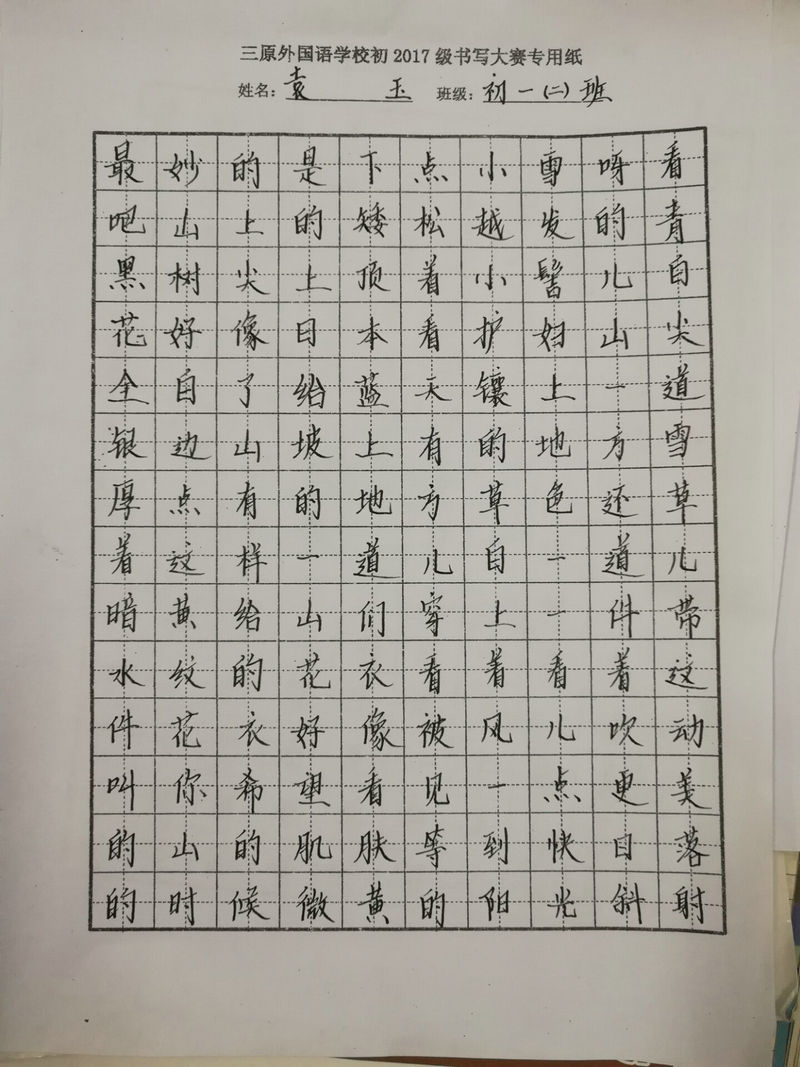 三原外国语学校初2017级书写大赛专用纸
姓名：袁玉 班级：初一(二)班
最妙的是下点小雪呀看
吧山上的矮松越发的青
黑树尖上顶着小髻儿白
花好像日本看护妇山尖
全白了给蓝天镶上一道
银边山坡上有的地方雪
厚点有的地方草色还草
着这样一道儿白一道儿
暗黄给山们穿上一件带
水纹的花衣看着看着这
件花衣好像被风儿吹动
叫你希望看见一点更美
的山的肌肤等到快日落
的时候微黄的阳光斜射